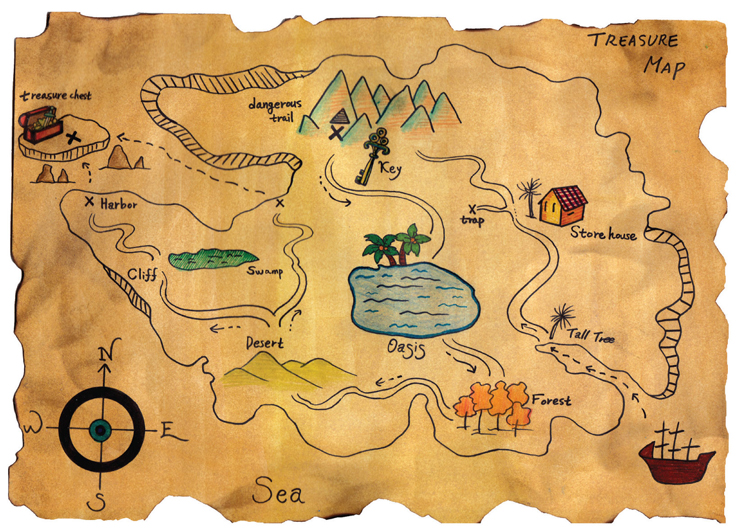 TREASURE
MAP
treasure chest
dangerous
trail
Key
Harbor
trap
Store house
Cliff
Swamp
Tall Tree
Desert
Oasis
Forest
N
W
E
S
Sea